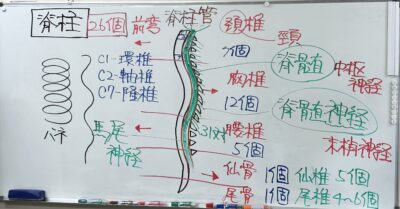 脊柱 26個 前弯
脊柱管
頚椎 頸
7個
C1-環椎
C2-軸椎
C7-隆椎
バネ
馬尾
神経
胸椎
12個
脊髄
中枢
神経
脊髄神経
末梢神経
31対
腰椎
5個
仙骨 1個 仙椎 5個
尾骨 1個 尾椎 4~6個